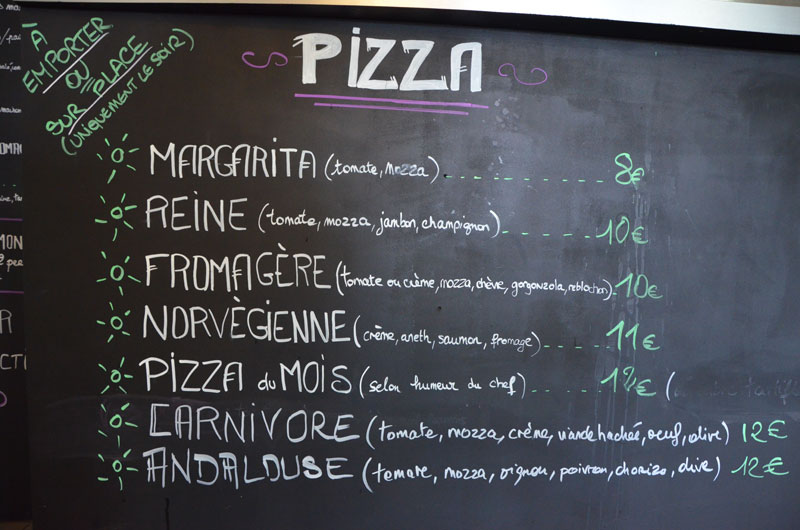 À
EMPORTER
OU
SUR PLACE
(UNIQUEMENT LE SOIR)
PIZZA
MARGARITA (tomate, mozza) 8€
REINE (tomate, mozza, jambon, champignon) 10€
FROMAGÈRE (tomate ou crème, mozza, chèvre, gorgonzola, reblochon) 10€
NORVÈGIENNE (crème, aneth, saumon, fromage) 11€
PIZZA du MOIS (selon humeur du chef) 12€
CARNIVORE (tomate, mozza, crème, viande hachée, oeuf, olive) 12€
ANDALOUSE (tomate, mozza, oignon, poivron, chorizo, olive) 12€